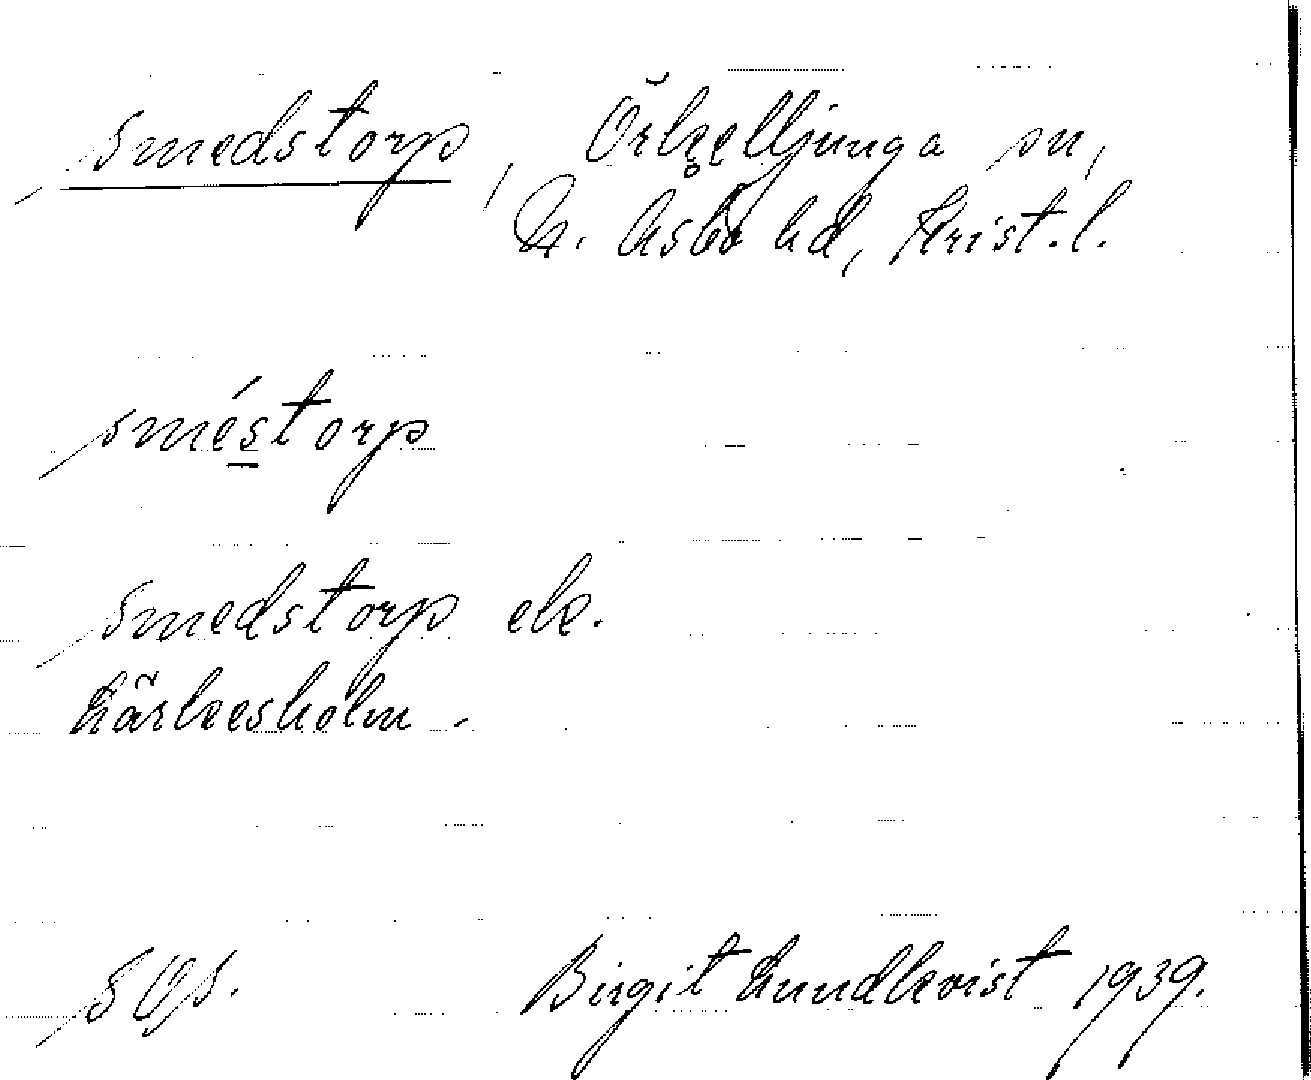 Smedstorp, Örkelljunga sn,
N. Åsbo hd, Krist. l.
sméstorp
Smedstorp ek.
Kärleesholm.
SOS.
Birgit Lundkvist 1939.